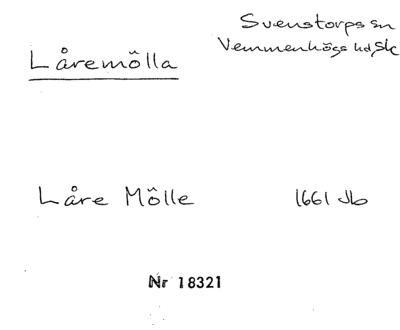 Låremölla
Svenstorps sn
Vemmenhögs hd, Sk
Låre Mölle 1661 Jb
Nr 18321